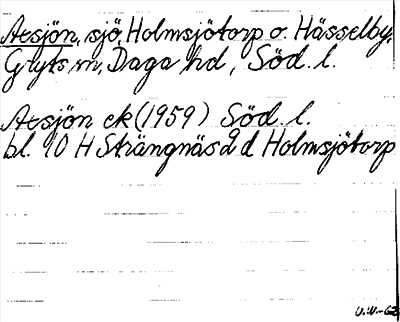 Aesjön, sjö, Holmsjötorp o. Hässelby,
Gryts sn, Daga hd, Söd. l.
Aesjön ek (1959) Söd. l.
bl. 10 H Strängnäs 2 d Holmsjötorp
U.W.-62